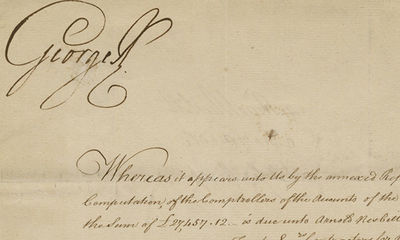 George R
Whereas it appears unto Us by the annexed
Computation of the Comptrollers of the Accounts of the
the Sum of £27,457.12 — is due unto Arnold Nesbitt